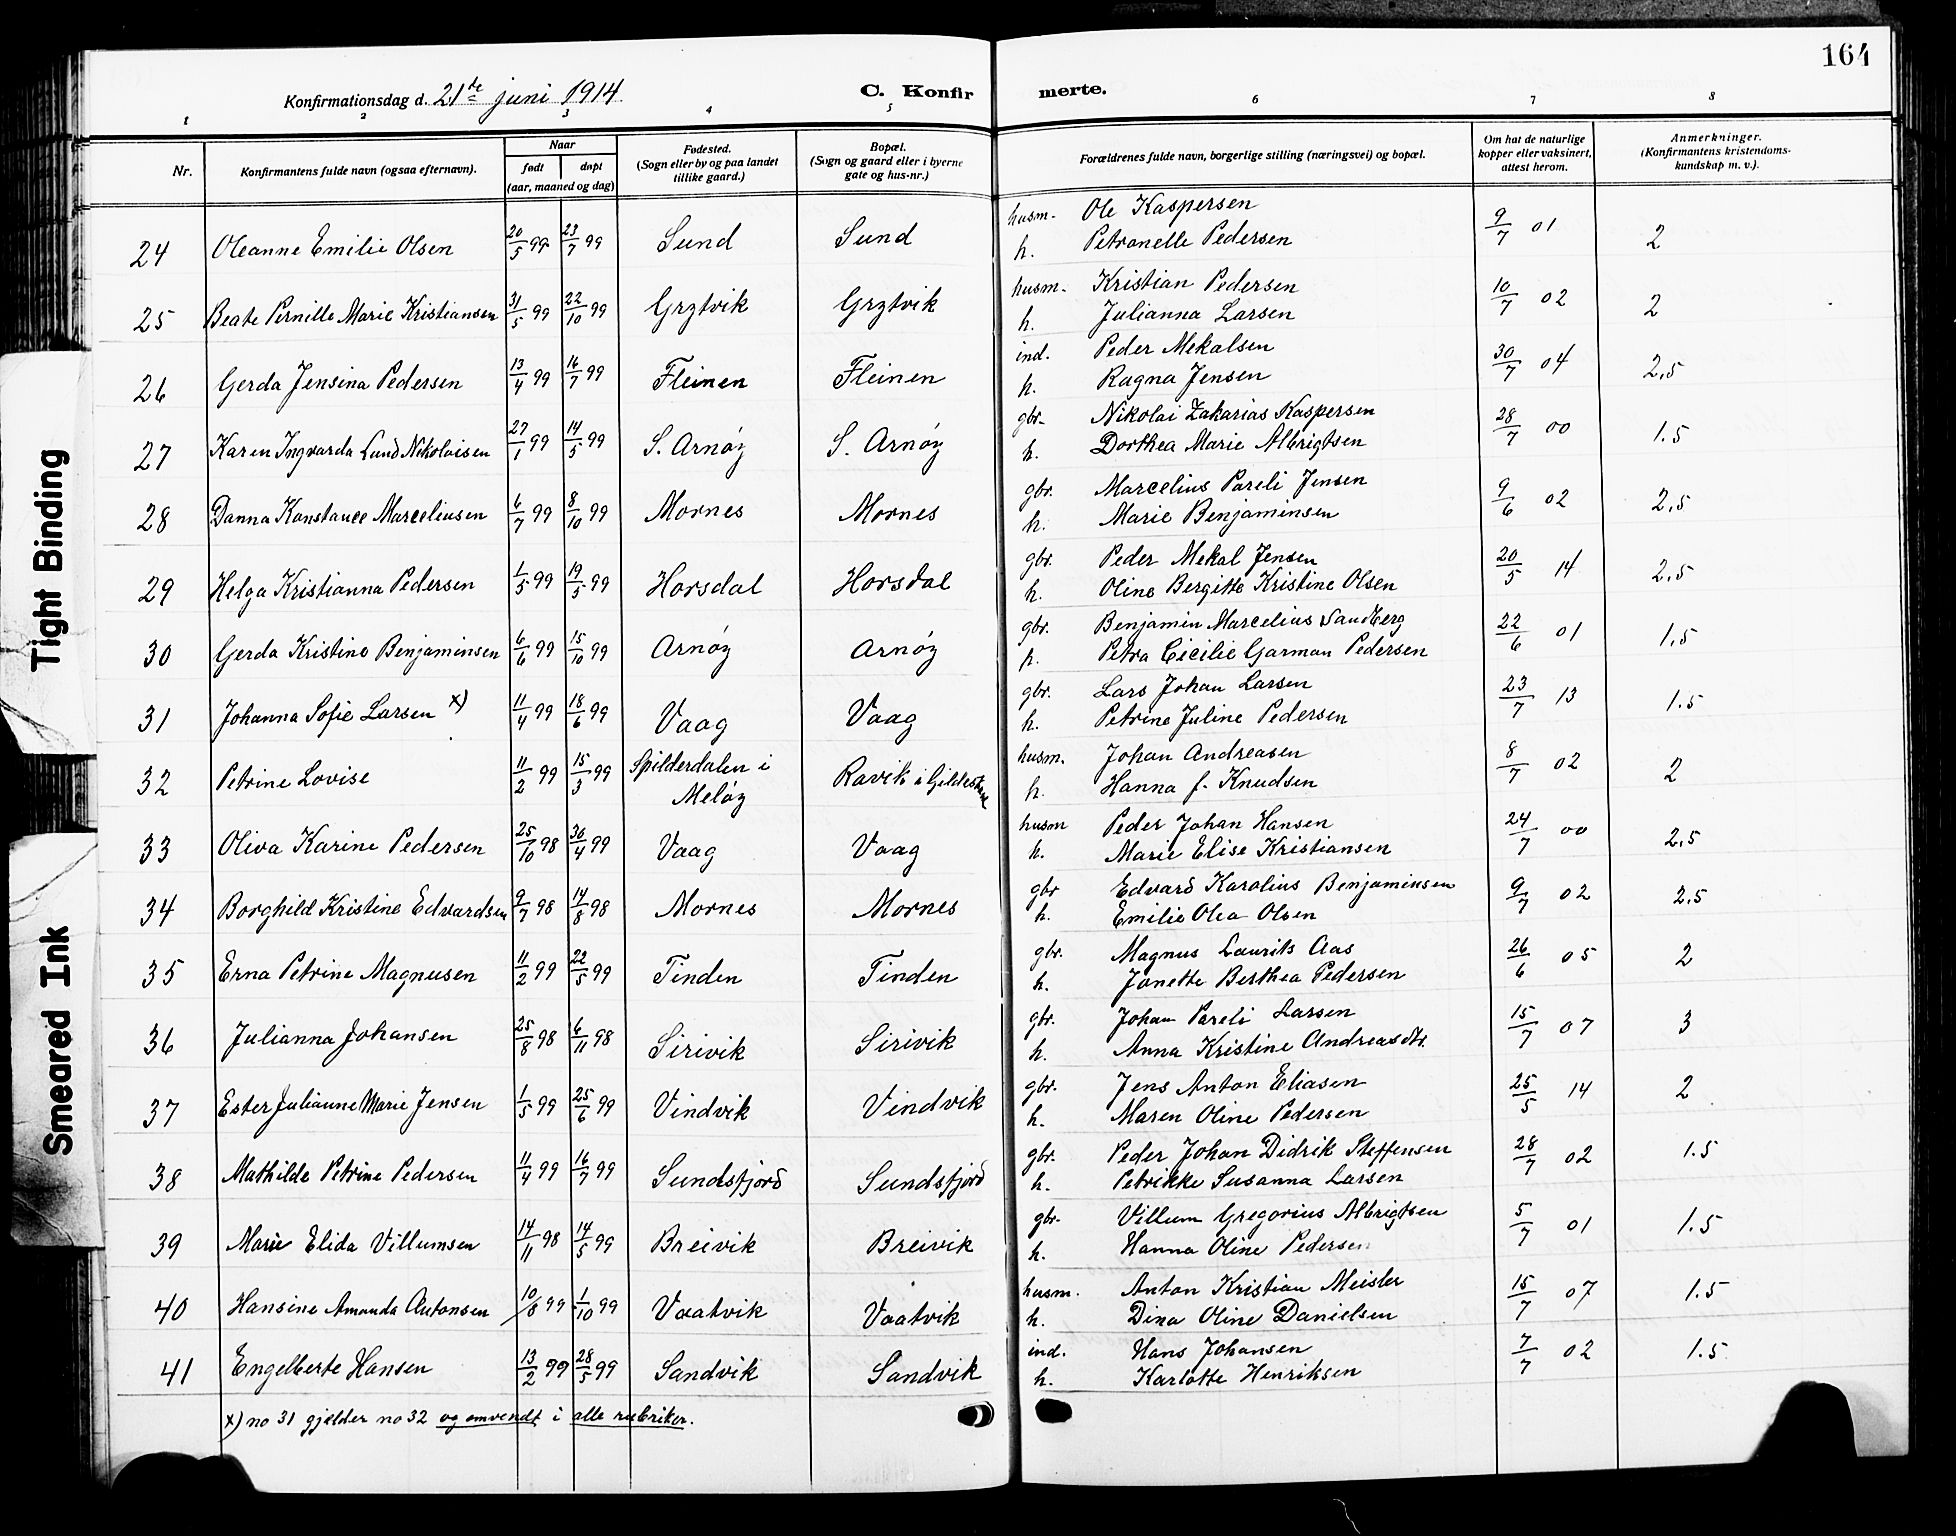 164
Konfirmationsdag d. 21de juni 1914.
C. Konfirmerte.
1 2 3 4 5 6 7 8
Nr.
Konfirmantens fulde navn (ogsaa efternavn).
Naar
født døpt
(aar, maaned og dag)
Fødested.
(Sogn eller by og paa landet
tillike gaard.)
Bopæl.
(Sogn og gaard eller i byerne
gate og hus-nr.)
Forældrenes fulde navn, borgerlige stilling (næringsvei) og bopæl.
Om hat de naturlige
kopper eller vaksinert,
attest herom.
Anmerkninger.
(Konfirmantens kristendoms-
kundskap m. v.).
24 Oleanne Emilie Olsen 20/5 99 23/7 99 Sund Sund husm. Ole Kaspersen 9/7 01 2
h. Petronelle Pedersen
25 Beate Pernille Marie Kristiansen 31/5 99 22/10 99 Grytvik Grytvik husm. Kristian Pedersen 10/7 02 2
h. Julianna Larsen
26 Gerda Jensina Pedersen 13/4 99 16/7 99 Fleinen Fleinen ind. Peder Mekalsen 30/7 04 2,5
h. Ragna Jensen
27 Karen Ingvarda Lund Nikolaisen 27/1 99 14/5 99 S. Arnøy S. Arnøy gbr. Nikolai Zakarias Kaspersen 28/7 00 1.5
h. Dorthea Marie Albrigtsen
28 Danna Konstance Marceliusen 6/7 99 8/10 99 Mornes Mornes gbr. Marcelius Pareli Jensen 9/6 02 2,5
h. Marie Benjaminsen
29 Helga Kristianna Pedersen 1/5 99 19/5 99 Horsdal Horsdal gbr. Peder Mekal Jensen 20/5 14 2,5
h. Oline Bergitte Kristine Olsen
30 Gerda Kristine Benjaminsen 6/6 99 15/10 99 Arnøy Arnøy gbr. Benjamin Marcelius Sandberg 22/6 01 1,5
h. Petra Cicilie Garman Pedersen
31 Johanna Sofie Larsen x) 11/4 99 18/6 99 Vaag Vaag gbr. Lars Johan Larsen 23/7 13 1.5
h. Petrine Juline Pedersen
32 Petrine Lovise 11/2 99 15/3 99 Spilderdalen i Meløy Ravik i Gildeskaal husm. Johan Andreasen 8/7 02 2
h. Hanna f. Knudsen
33 Oliva Karine Pedersen 25/10 98 30/4 99 Vaag Vaag husm Peder Johan Hansen 24/7 00 2,5
h. Marie Elise Kristiansen
34 Borghild Kristine Edvardsen 9/7 98 14/8 98 Mornes Mornes gbr Edvard Karolius Benjaminsen 9/7 02 2,5
h. Emilie Olea Olsen
35 Erna Petrine Magnusen 11/2 99 22/5 99 Tinden Tinden gbr. Magnus Laurits Aas 26/6 05 2
h. Janette Berthea Pedersen
36 Julianna Johansen 25/8 98 6/11 98 Sirivik Sirivik gbr. Johan Pareli Larsen 15/7 07 3
h. Anna Kristine Andreasdtr.
37 Ester Julianne Marie Jensen 1/5 99 25/6 99 Vindvik Vindvik gbr. Jens Anton Eliasen 25/5 14 2
h. Maren Oline Pedersen
38 Mathilde Petrine Pedersen 11/4 99 16/7 99 Sundsfjord Sundsfjord gbr. Peder Johan Didrik Steffensen 28/7 02 1.5
h. Petrikke Susanna Larsen
39 Marie Elida Villumsen 14/11 98 14/5 99 Breivik Breivik gbr. Villum Gregorius Albrigtsen 5/7 01 1.5
h. Hanna Oline Pedersen
40 Hansine Amanda Antonsen 10/8 99 1/10 99 Vaatvik Vaatvik husm. Anton Kristian Meisler 15/7 07 1.5
h. Dina Oline Danielsen
41 Engelberte Hansen 13/2 99 28/5 99 Sandvik Sandvik ind. Hans Johansen 7/7 02 1.5
h. Karlotte Henriksen
x) no 31 gjelder no 32 og omvendt i alle rubriker.
Tight Binding
Smeared Ink